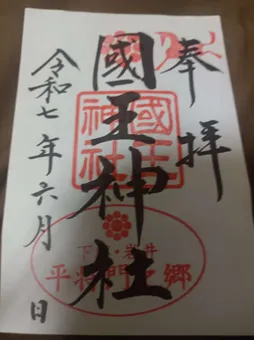 奉拝
國王神社
國王神社
下総・岩井
平将門之郷
令和七年六月日